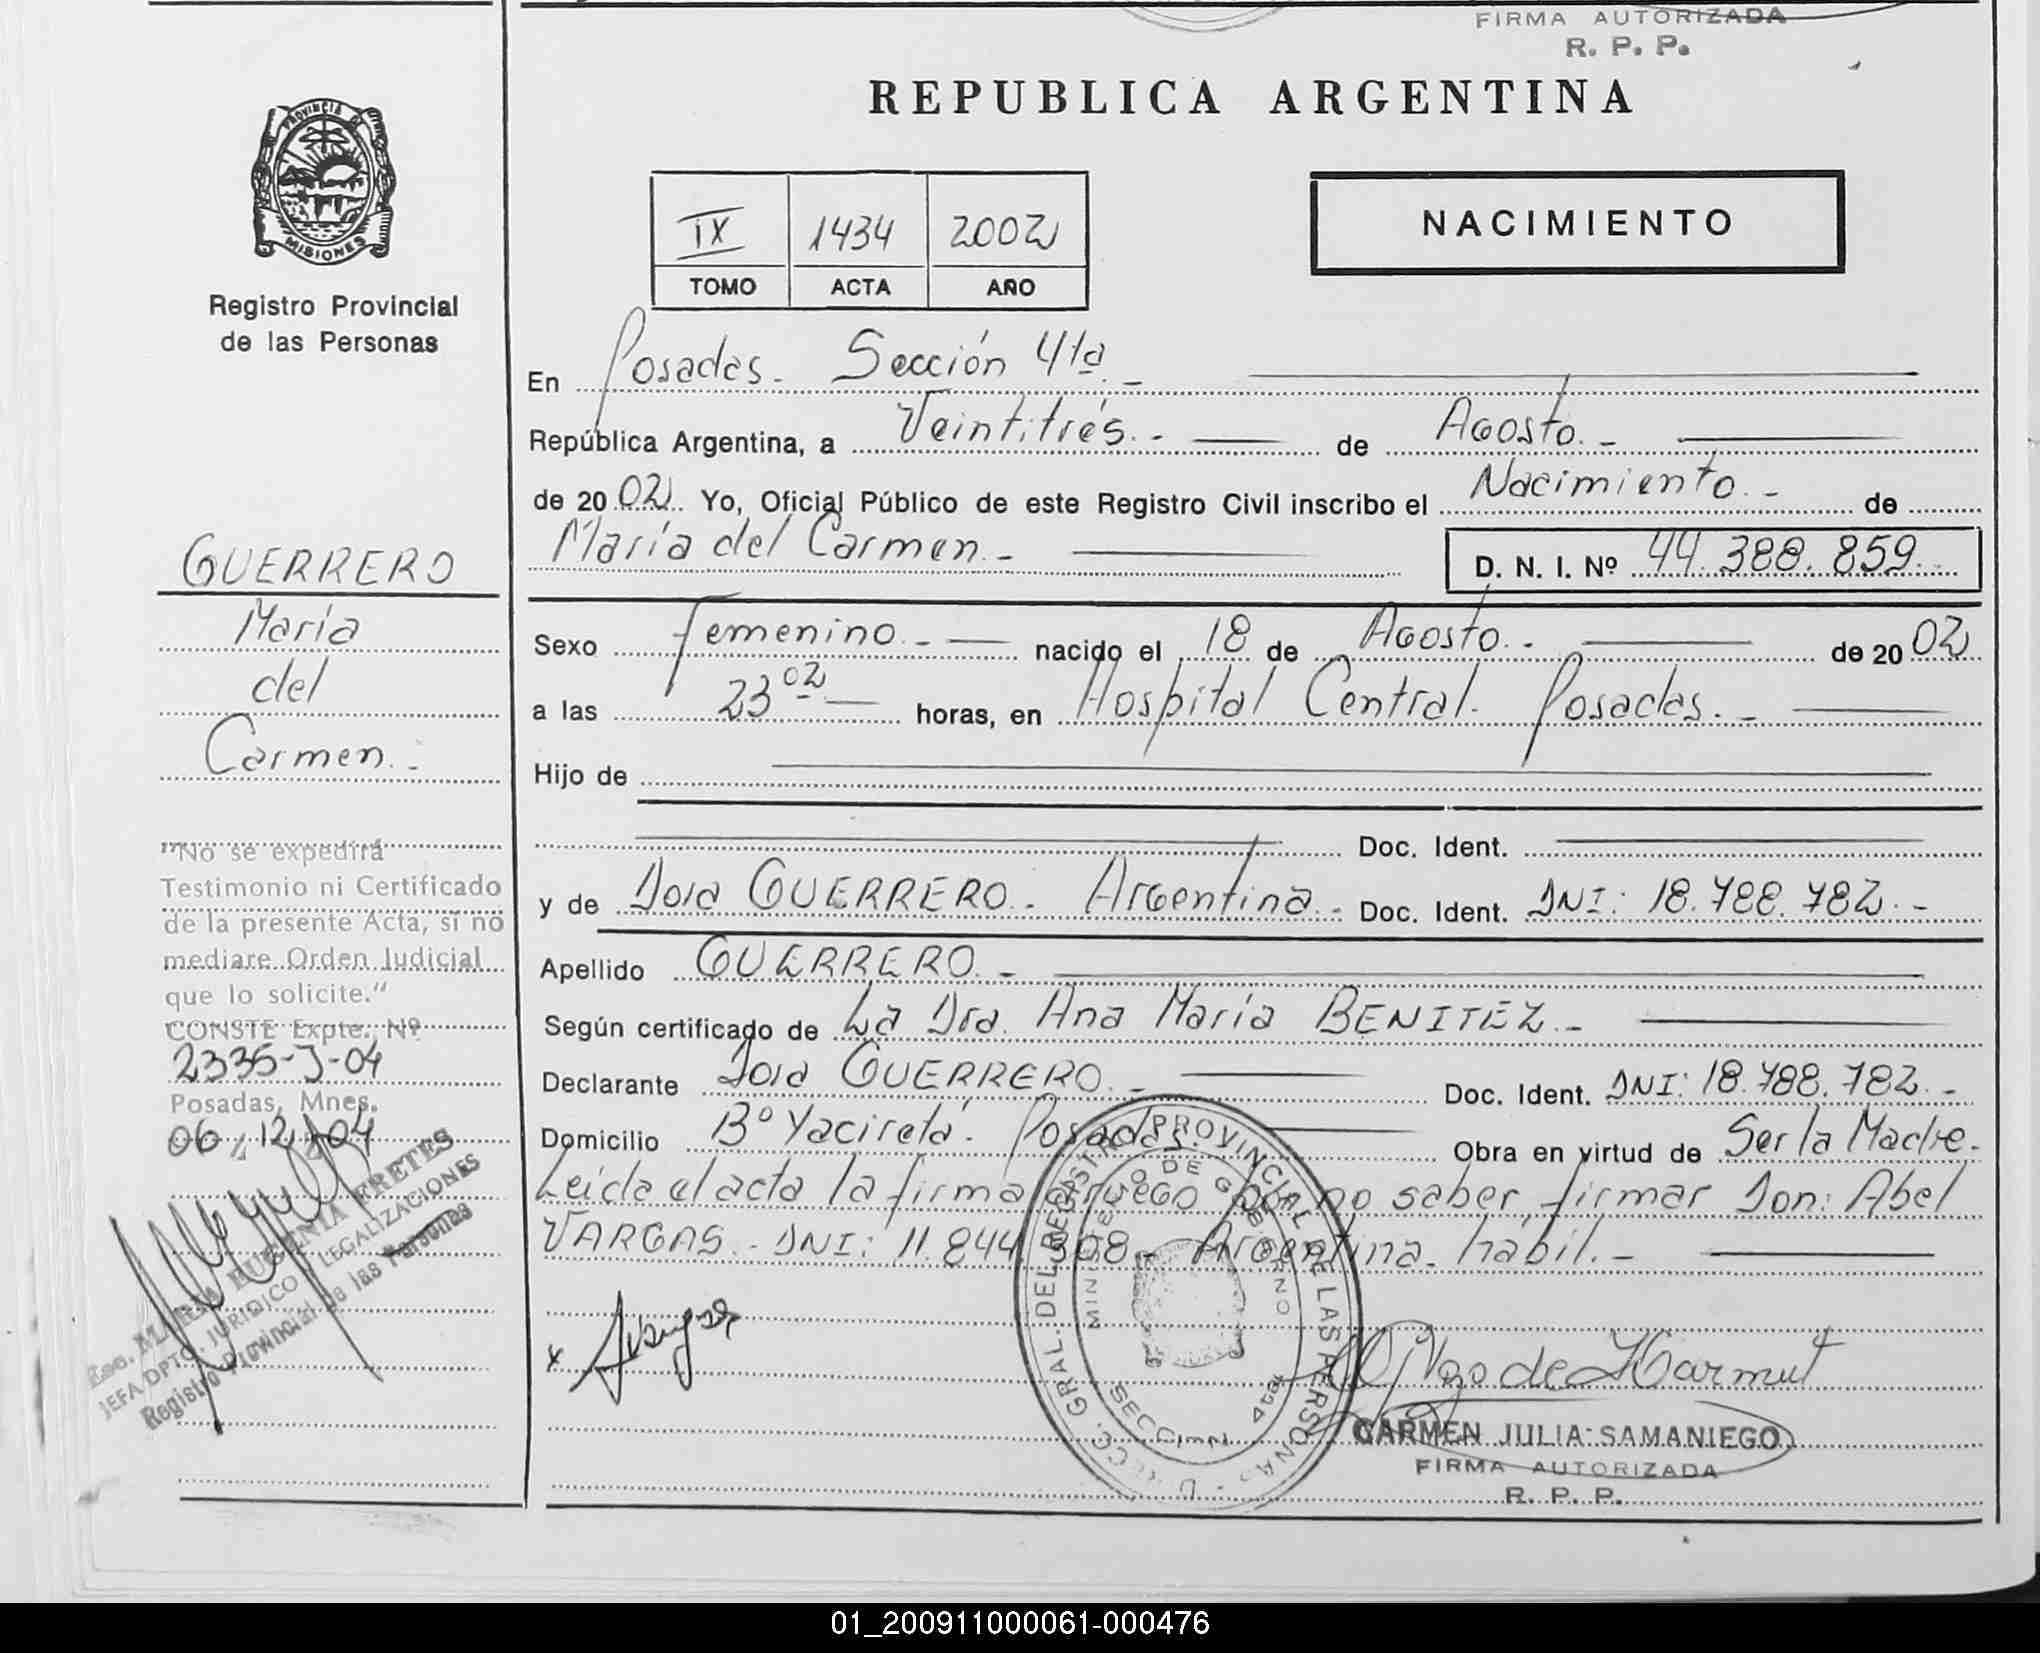 FIRMA AUTORIZADA
R. P. P.
REPUBLICA ARGENTINA
PROVINCIA DE
MISIONES
Registro Provincial
de las Personas
IX 1434 2002
TOMO ACTA AÑO
NACIMIENTO
En Posadas. Sección 41a. -
República Argentina, a Veintitrés. - de Agosto. -
de 20 02 Yo, Oficial Público de este Registro Civil inscribo el Nacimiento. - de
María del Carmen. - D. N. I. Nº 44.388.859.-
GUERRERO
María
del
Carmen. -
Sexo Femenino. - nacido el 18 de Agosto. - de 20 02
a las 23 02 - horas, en Hospital Central. Posadas. -
Hijo de
Doc. Ident.
y de GUERRERO. Argentina. - Doc. Ident. DNI: 18.788.782. -
Apellido GUERRERO. -
Según certificado de La Dra. Ana María BENITEZ. -
Declarante GUERRERO. - Doc. Ident. DNI: 18.788.782. -
Domicilio Bº Yaciretá. Posadas. Obra en virtud de Ser la Madre.
Leída el acta la firma a ruego por no saber firmar Don: Abel
VARGAS. - DNI: 11.844.308 - Argentina. hábil. -
"No se expedirá
Testimonio ni Certificado
de la presente Acta, si no
mediare Orden Judicial
que lo solicite."
CONSTE Expte. Nº
2335-J-04
Posadas, Mnes.
06, 12, 04
Esc. MARIA EUGENIA FRETES
JEFA DPTO. JURIDICO Y LEGALIZACIONES
Registro Provincial de las Personas
DIRECC. GRAL. DEL REGISTRO PROVINCIAL DE LAS PERSONAS
MINISTERIO DE GOBIERNO
SECCION
x
CARMEN JULIA SAMANIEGO
FIRMA AUTORIZADA
R. P. P.
01_200911000061-000476